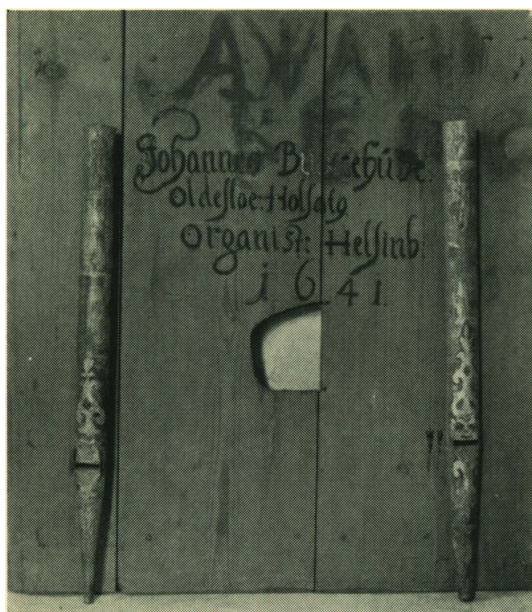 Johannes Buxtehüde.
Oldesloe: Holsatg
Organist: Helsinb:
i 6 4 1.